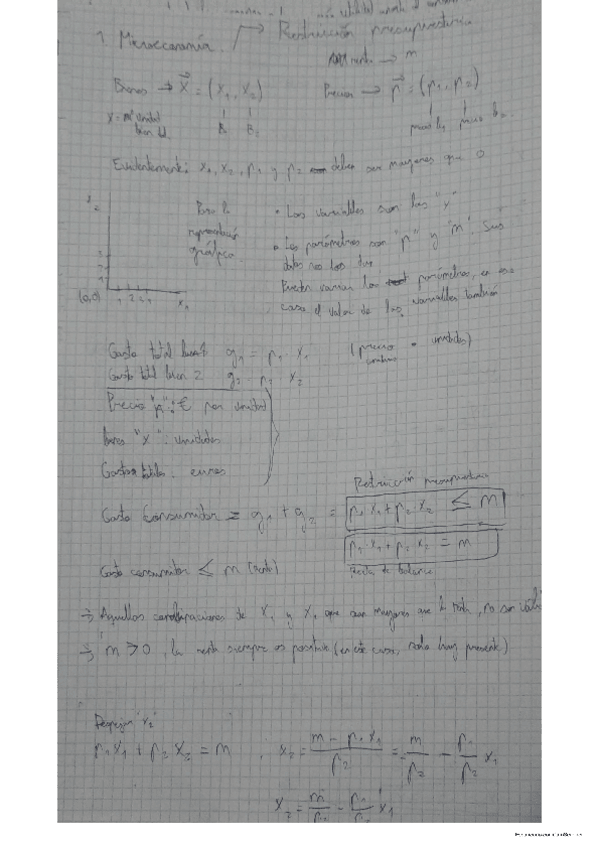 1. Microeconomía. → Restricción presupuestaria
renta → m
Bienes → x = (x₁, x₂) Precios → p = (p₁, p₂)
B₁ B₂
Evidentemente: x₁, x₂, p₁ y p₂ deben ser mayores que 0
representació
gráfica
• Las variables son las "x"
• Los parámetros son "p" y "m". Sus
datos nos los dan
Pueden variar los parámetros, en ese
caso el valor de las variables también
(0,0) 1 2 3 4 x₁
Gasto total bien 1 g₁ = p₁ · x₁ (precio · unidades)
Gasto total bien 2 g₂ = p₂ · x₂
Precio "p": € por unidad
bienes "x": unidades
Gastos totales: euros
Restricción presupuestaria
Gasto consumidor = g₁ + g₂ = p₁ x₁ + p₂ x₂ ≤ m
p₁ x₁ + p₂ x₂ = m
Gasto consumidor ≤ m (renta) Recta de balance
→ Aquellas combinaciones de x₁ y x₂ que son mayores que la renta, no son
→ m > 0, la renta siempre es positiva (en este caso, renta hoy presente)
Despejar "x₂"
p₁x₁ + p₂x₂ = m , x₂ = (m - p₁x₁)/p₂ = m/p₂ - p₁/p₂ x₁
x₂ = m/p₂ - p₁/p₂ x₁